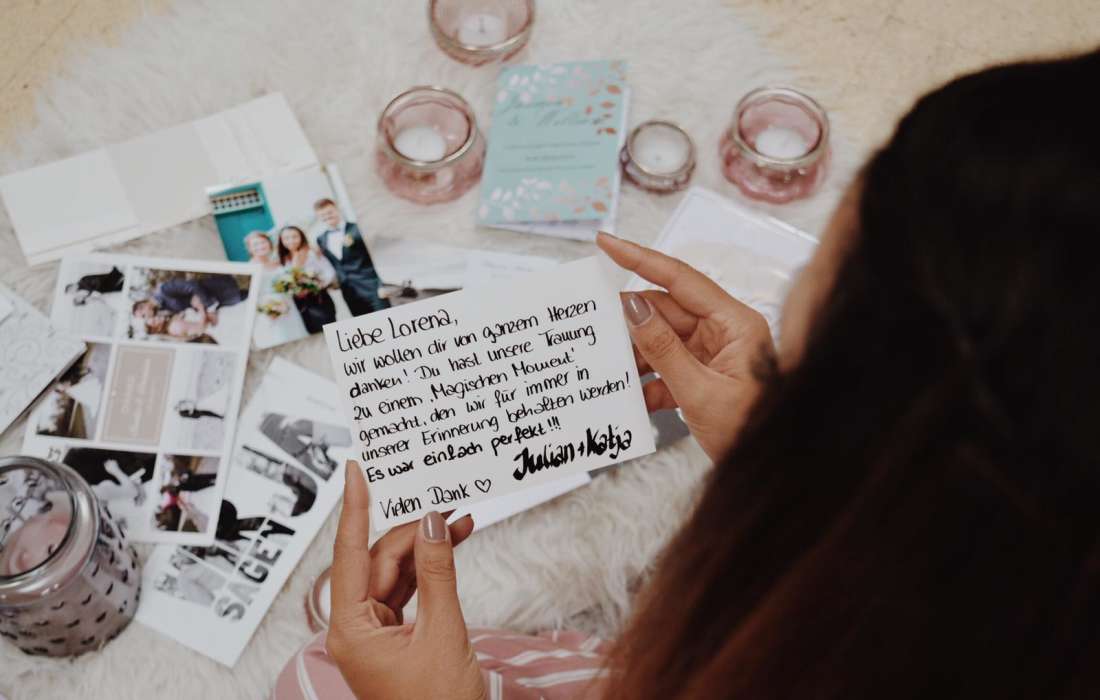 Liebe Lorena,
wir wollen dir von ganzem Herzen
danken! Du hast unsere Trauung
zu einem 'Magischen Moment'
gemacht, den wir für immer in
unserer Erinnerung behalten werden!
Es war einfach perfekt!!!
Julian + Katja
Vielen Dank ♡
SAGEN